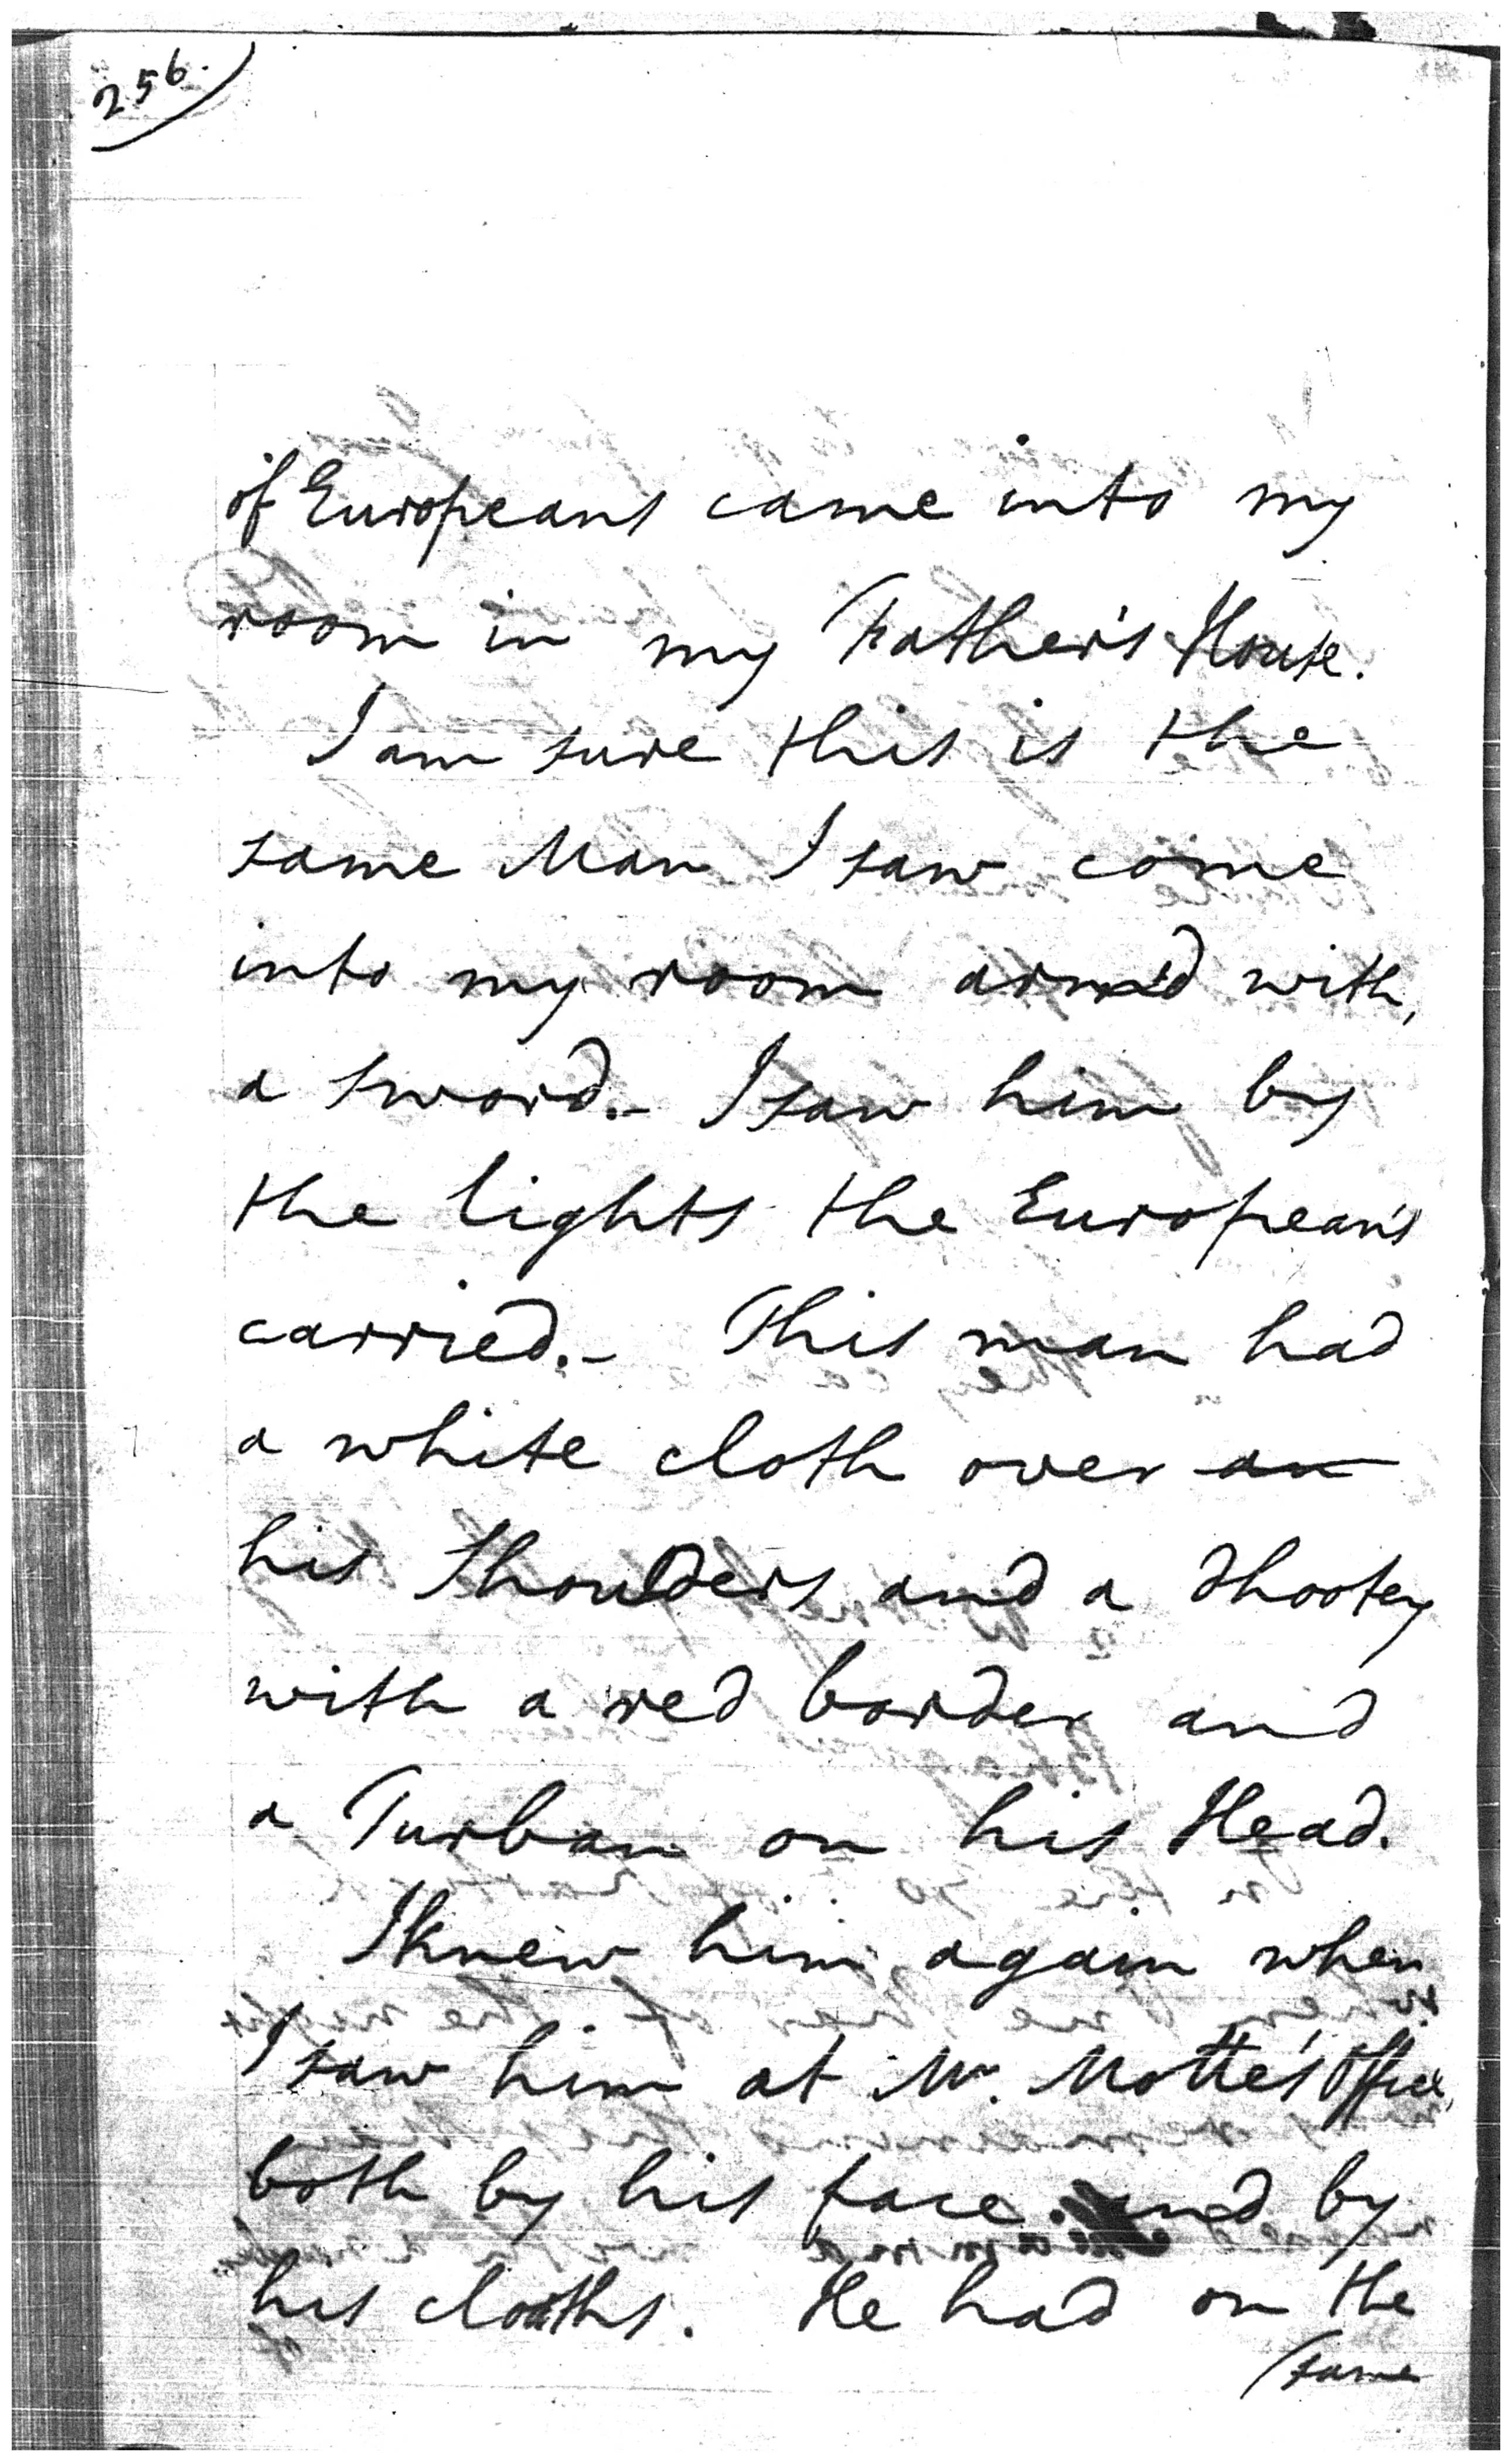 256.
of Europeans came into my
room in my Father's House.
I am sure this is the
same Man I saw come
into my room arm'd with
a sword.- I saw him by
the lights the European's
carried.- This man had
a white cloth over an
his Shoulders and a dhootey
with a red border and
a Turban on his Head.
I knew him again when
I saw him at Mr. Motte's Office,
both by his face and by
his cloaths. He had on the
same